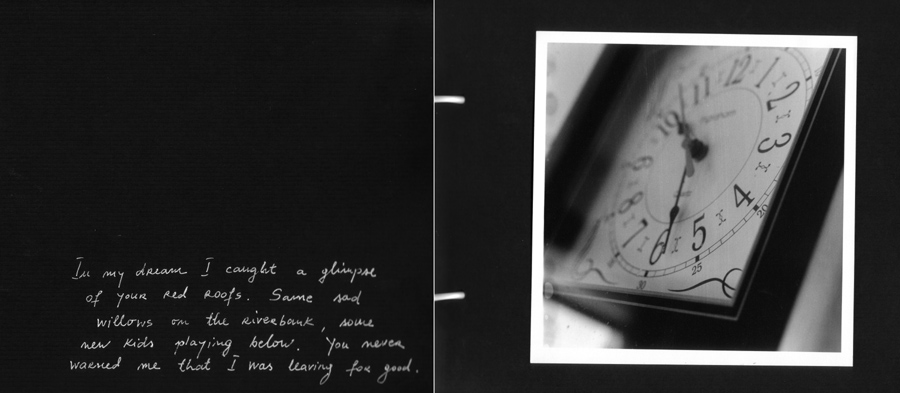 In my dream I caught a glimpse
of your red roofs. Same sad
willows on the riverbank, some
new kids playing below. You never
warned me that I was leaving for good.
10 11 12 1 2 3 4 5 6 7 8 9
20
25
30